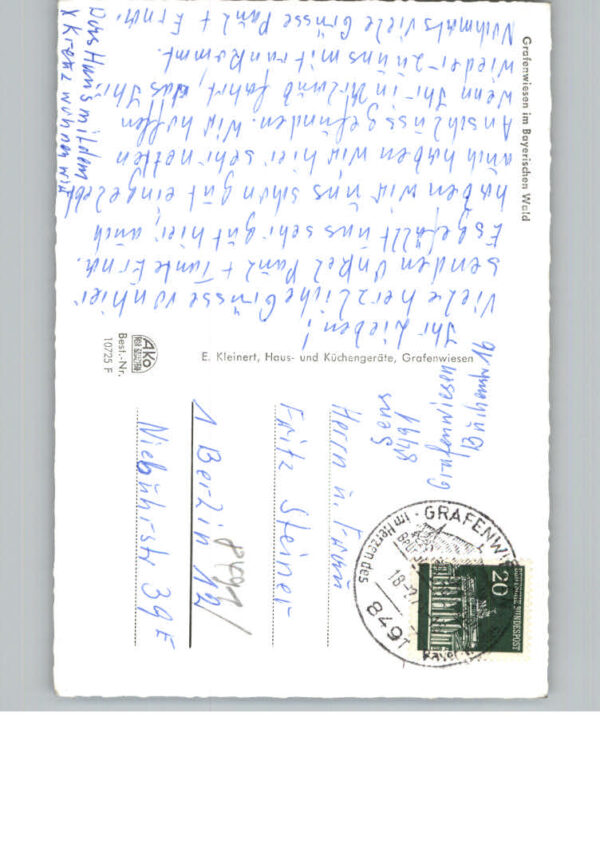 Grafenwiesen im Bayerischen Wald
Ihr Lieben!
Viele herzliche Grüsse von hier
senden Onkel Paul + Tante Erna.
Es gefällt uns sehr gut hier, auch
haben wir uns schon gut eingelebt
auch haben wir hier sehr netten
Anschluss gefunden. Wir hoffen
wenn Ihr in Urlaub fahrt, das Ihr
wieder zu uns mit rankommt.
Nochmals viele Grüsse Paul + Erna.
Das Haus mit dem
X Kreuz wohnen wir
E. Kleinert, Haus- und Küchengeräte, Grafenwiesen
Ako
Best.-Nr.
10725 F
8491
Grafenwiesen
GRAFENWI
Im Herzen des
18.-2.
8491
20
DEUTSCHE BUNDESPOST
Herrn u. Frau
Fritz Steiner
1 Berlin 12
8491
Niebuhrstr 39 E